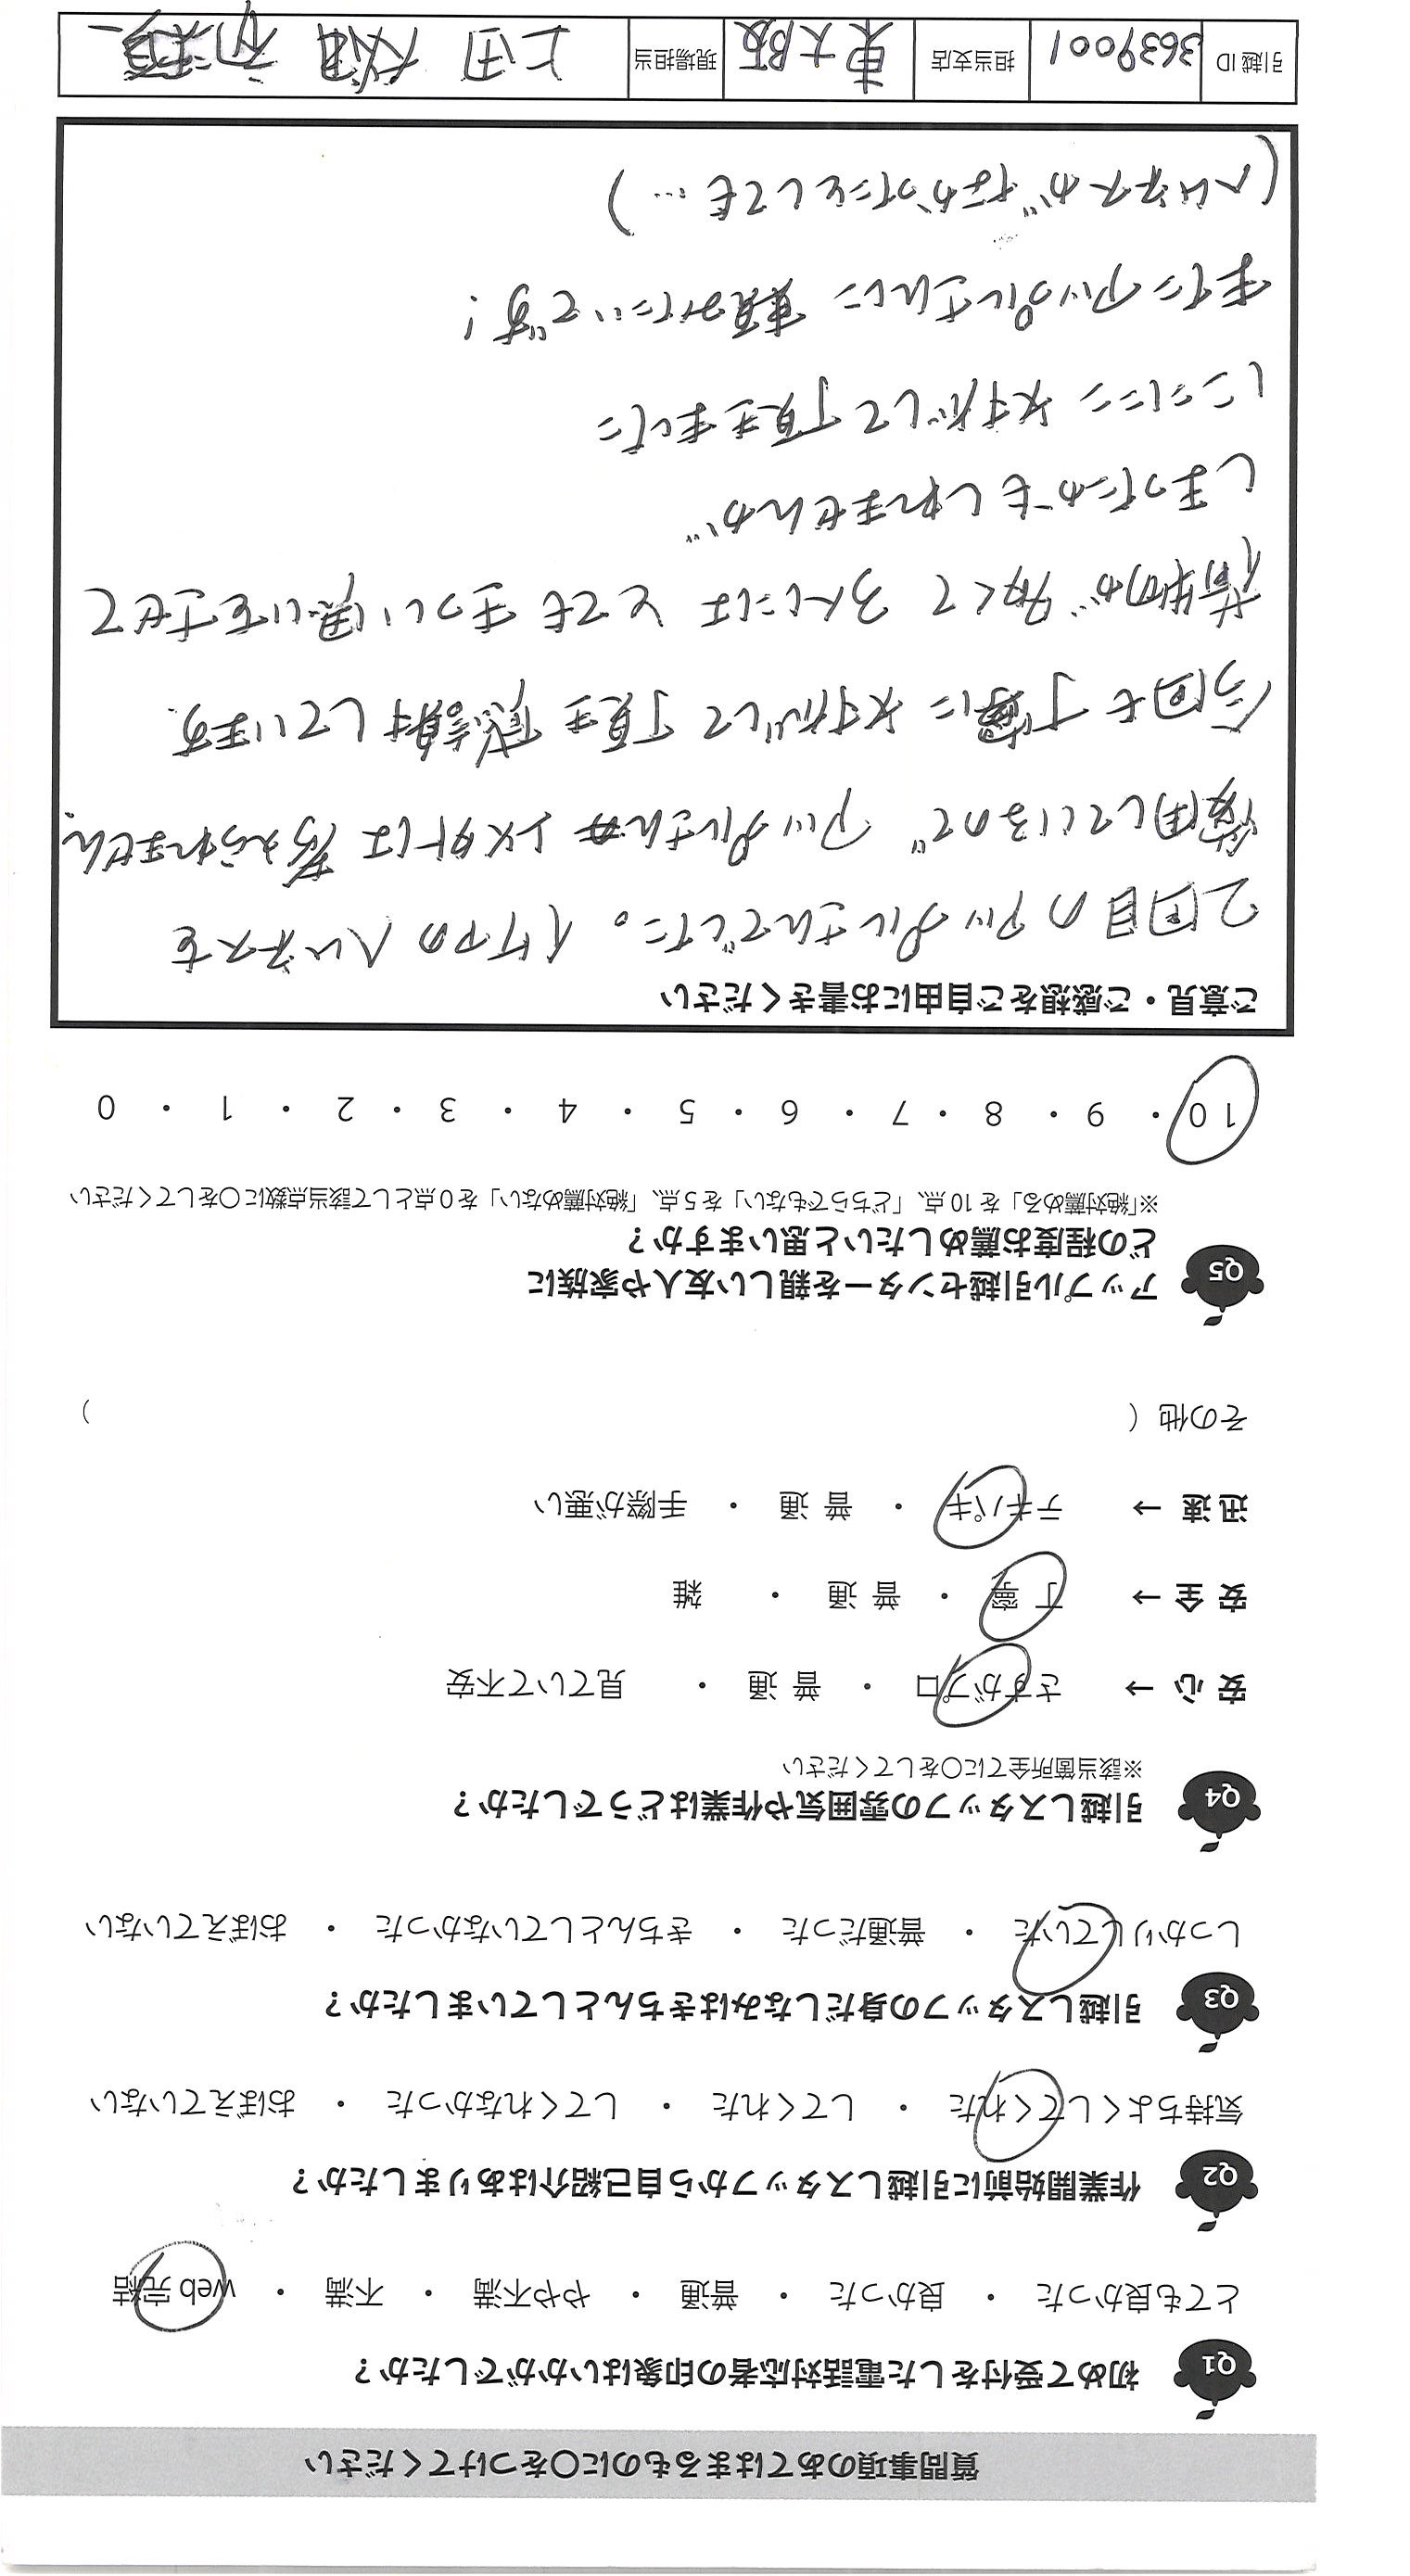 質問事項のあてはまるものに〇をつけてください
Q1 初めて受付をした電話対応者の印象はいかがでしたか？
とても良かった ・ 良かった ・ 普通 ・ やや不満 ・ 不満 ・ web完結
Q2 作業開始前に引越しスタッフから自己紹介はありましたか？
気持ちよくしてくれた ・ してくれた ・ してくれなかった ・ おぼえていない
Q3 引越しスタッフの身だしなみはきちんとしていましたか？
しっかりしていた ・ 普通だった ・ きちんとしていなかった ・ おぼえていない
Q4 引越しスタッフの雰囲気や作業はどうでしたか？
※該当箇所全てに〇をしてください
安心→ さすがプロ ・ 普通 ・ 見ていて不安
安全→ 丁寧 ・ 普通 ・ 雑
迅速→ テキパキ ・ 普通 ・ 手際が悪い
その他（ ）
Q5 アップル引越センターを親しい友人や家族に
どの程度お薦めしたいと思いますか？
※「絶対薦める」を10点、「どちらでもない」を5点、「絶対薦めない」を0点として該当点数に〇をしてください
10 ・ 9 ・ 8 ・ 7 ・ 6 ・ 5 ・ 4 ・ 3 ・ 2 ・ 1 ・ 0
ご意見・ご感想をご自由にお書きください
2回目のアップルさんでした。イケアのヘムネスを
使用しているので アップルさん以外は考えられません。
今回も丁寧に 対応して頂き 感謝しています。
荷物が多くて 3人には とても きつい思いをさせて
しまったかもしれませんが
にこにこ 対応して頂きました
またアップルさんに 頼みたいです!
(ヘムネスが なかったとしても…)
引越ID 3639001 担当支店 東大阪 現場担当 上田